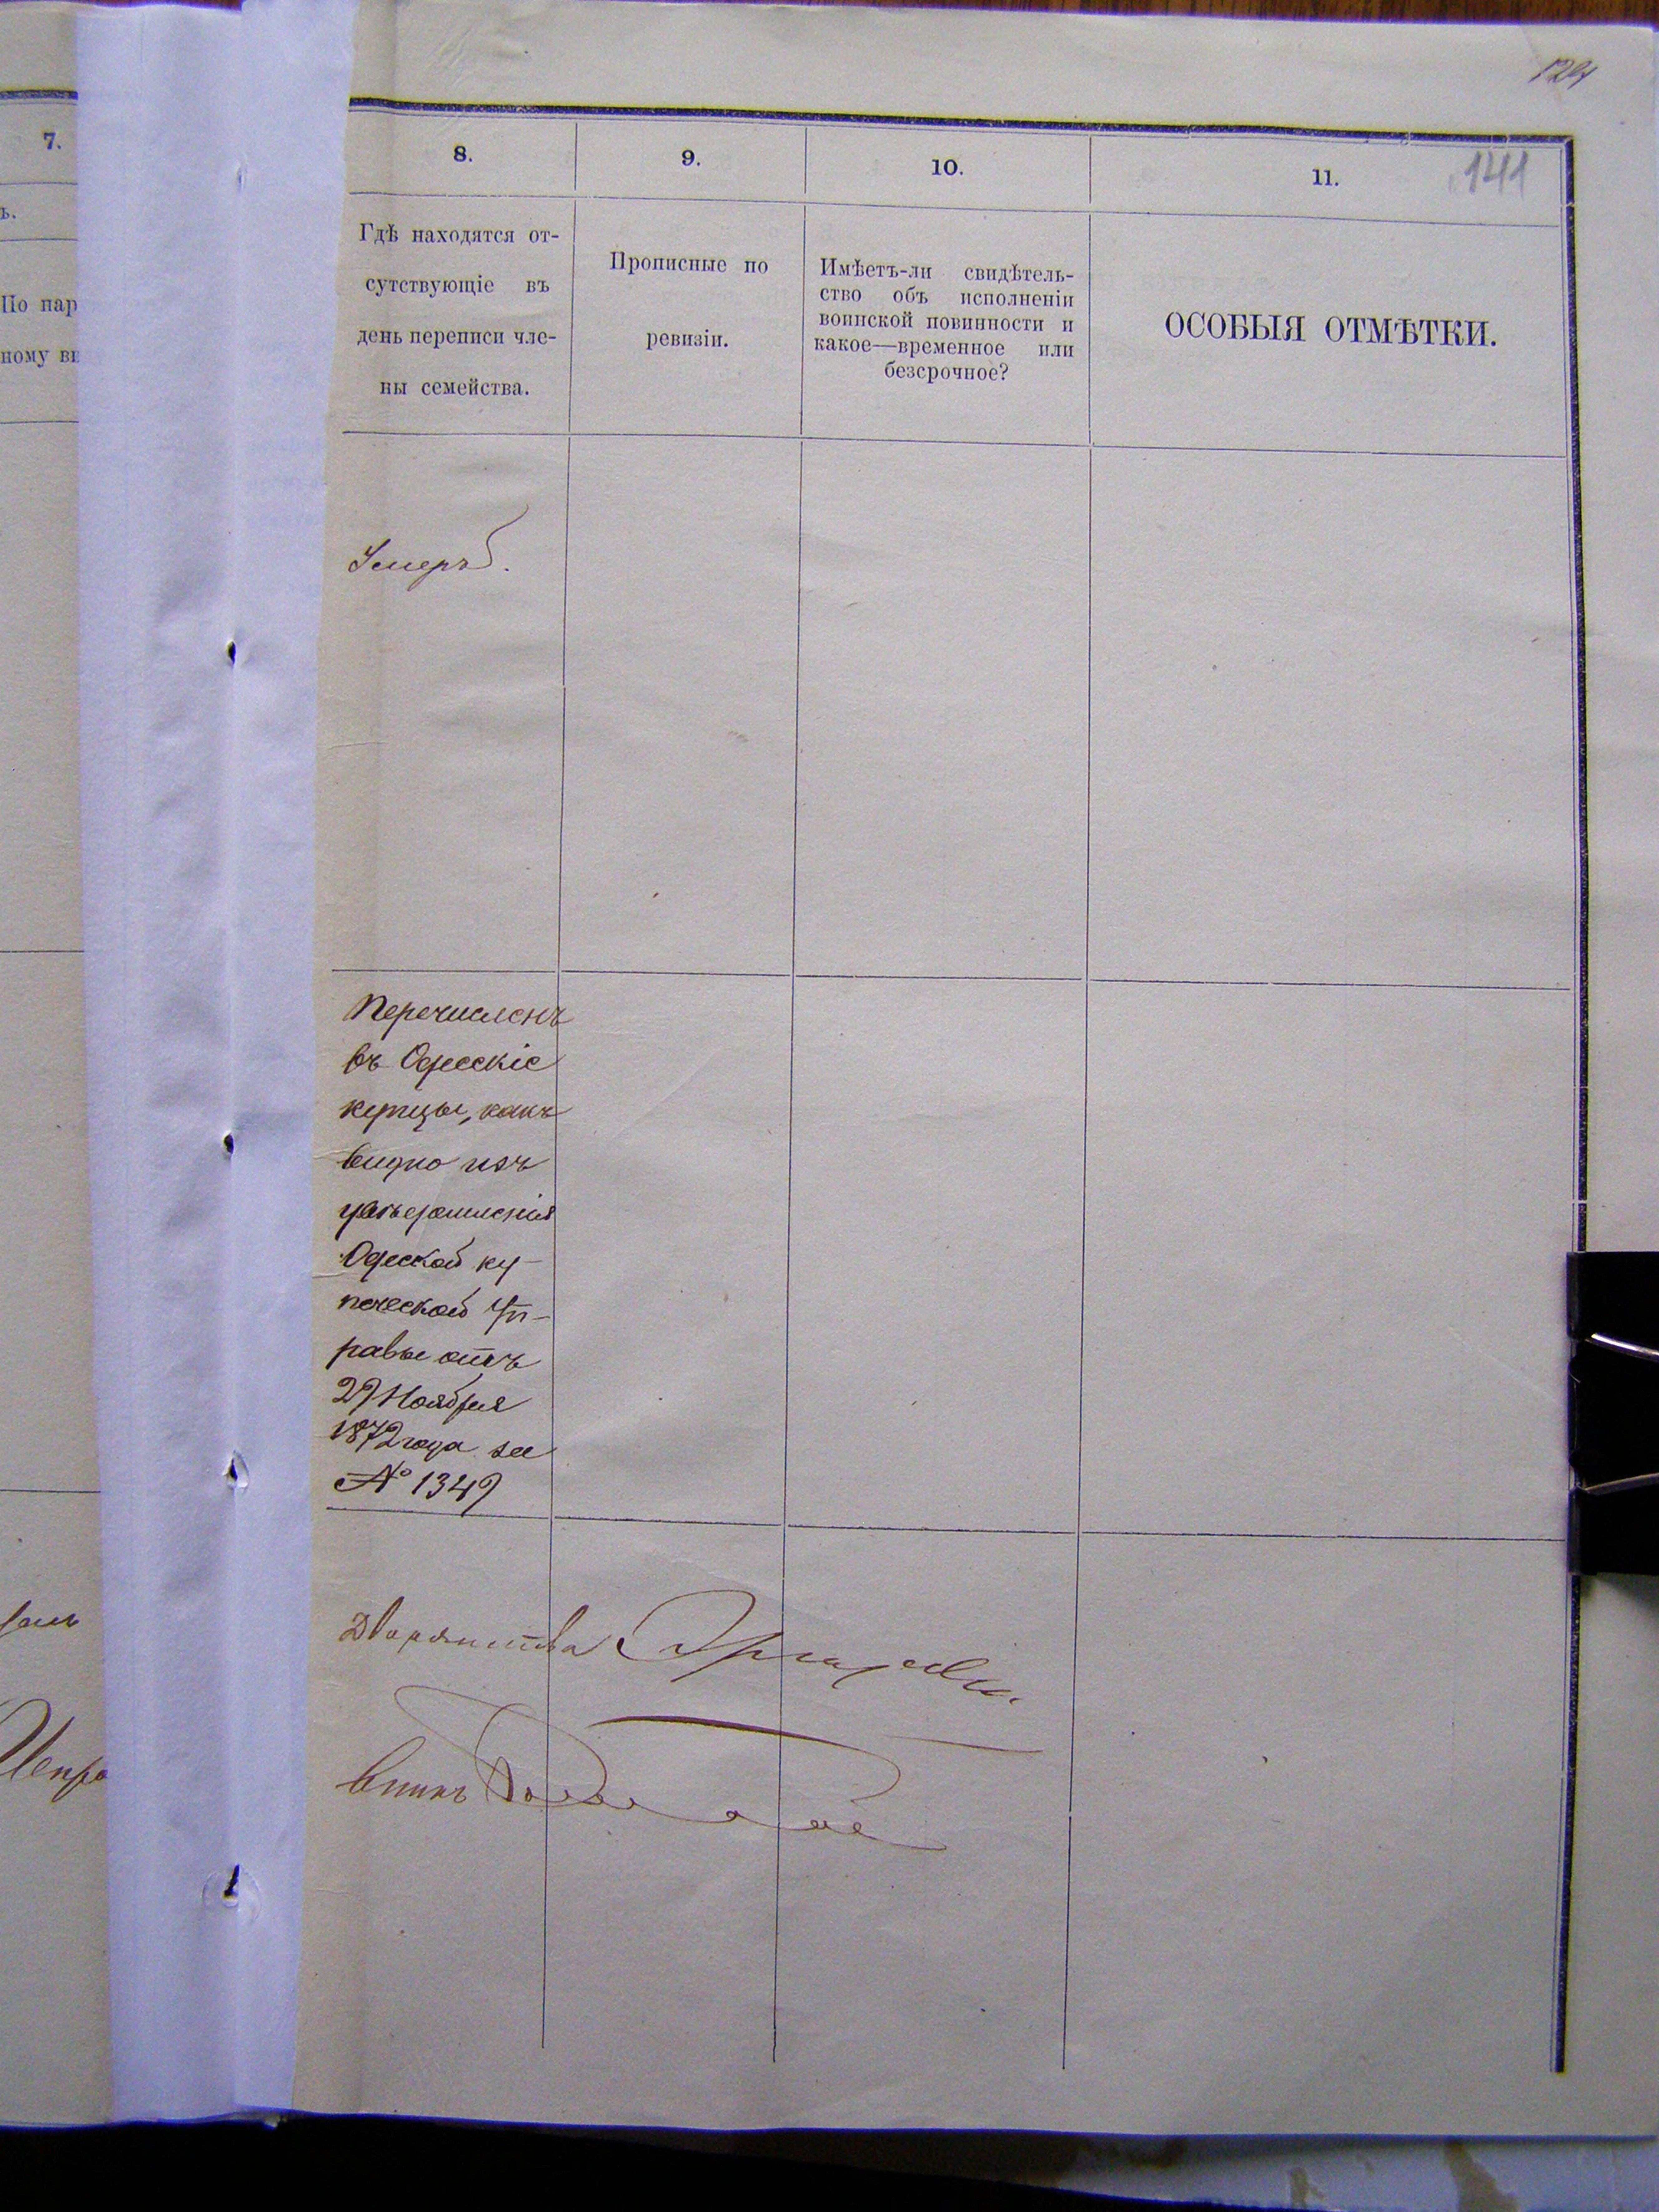 124
141
7.
ъ.
По нар
ному ви
8.
9.
10.
11.
Гдѣ находятся от-
сутствующіе въ
день переписи чле-
ны семейства.
Прописные по
ревизіи.
Имѣетъ-ли свидѣтель-
ство объ исполненіи
воинской повинности и
какое—временное или
безсрочное?
ОСОБЫЯ ОТМѢТКИ.
Умеръ.
Перечисленъ
въ Одесскіе
купцы, какъ
видно изъ
увѣдомленія
Одеской ку-
печеской Уп-
равы отъ
29 Ноября
1872 года за
№ 1349
Дворянства
Испра
вникъ